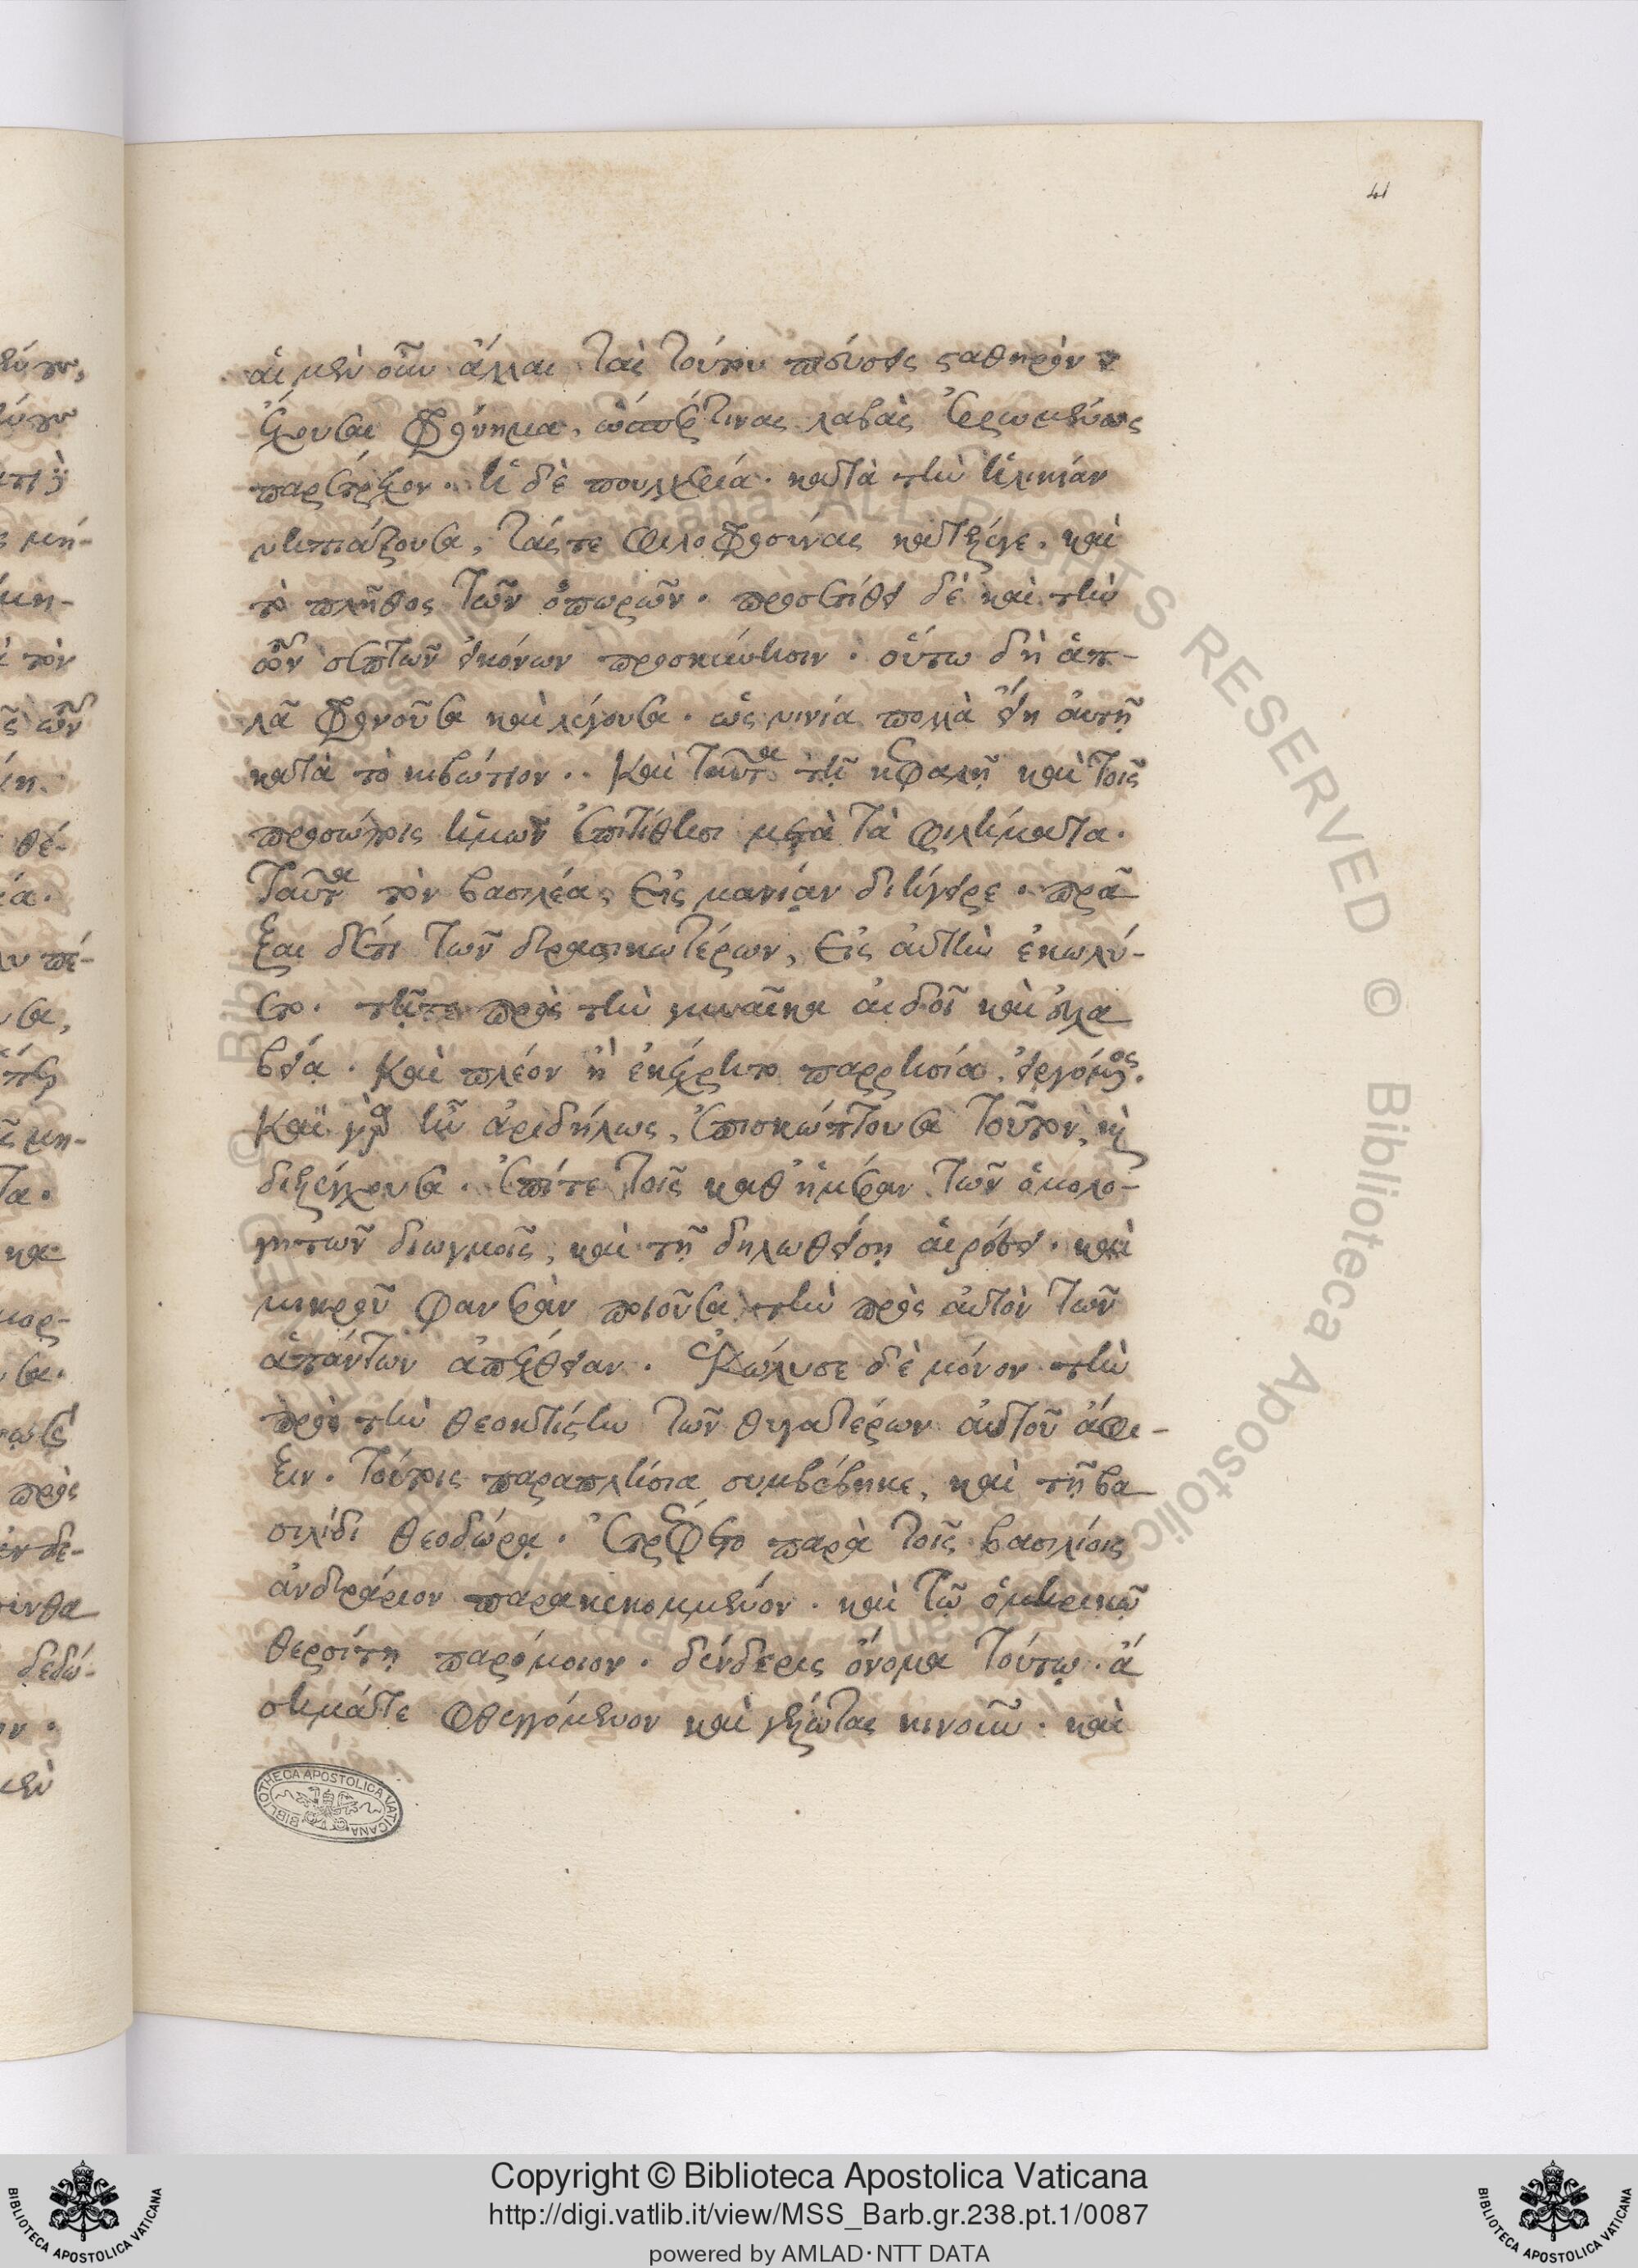 41
αἱ μὲν οὖν ἄλλαι τὰς τούτου πεύσεις σταθηρὸν
ἔχουσαι φρόνημα, ὥσπερ τινας λαβὰς ἐρρωμένως
παρέτρεχον. ἡ δὲ πουλχερία. κατὰ τὴν ἡλικίαν
νηπιάζουσα, τάς τε φιλοφροσύνας κατέλεγε, καὶ
τὸ πλῆθος τῶν ὀπωρῶν. προσετίθει δὲ καὶ τὴν
τῶν σεπτῶν εἰκόνων προσκύνησιν. οὕτω δὴ ἁπ-
λᾶ φρονοῦσα καὶ λέγουσα. ὡς νινία πολλὰ εἴη αὐτῇ
κατὰ τὸ κιβώτιον. καὶ ταῦτα τῇ κεφαλῇ καὶ τοῖς
προσώποις ἡμῶν ἐπιτίθησι μετὰ τὰ φιλήματα.
ταῦτα τὸν βασιλέα εἰς μανίαν διήγειρε. πρᾶ
ξαι δέ τι τῶν δραστικωτέρων, εἰς αὐτὴν ἐκωλύ-
ετο. τῇ τε πρὸς τὴν γυναῖκα αἰδοῖ καὶ εὐλα
βείᾳ. καὶ πλέον ἢ ἐκέχρητο παρρησίᾳ, εἰργόμενος.
καὶ γὰρ ἦν ἀριδήλως, ἐπισκώπτουσα τοῦτον, καὶ
διελέγχουσα. ἐπί τε τοῖς καθ' ἡμέραν τῶν ὁμολο-
γητῶν διωγμοῖς, καὶ τῇ δηλωθείσῃ αἱρέσει. καὶ
μικροῦ φανερὰν ποιοῦσα τὴν πρὸς αὐτὸν τῶν
ἁπάντων ἀπέχθειαν. ἐκώλυσε δὲ μόνον τὴν
πρὸς τὴν θεοκτίστην τῶν θυγατέρων αὐτοῦ ἄφι-
ξιν. τούτοις παραπλήσια συμβέβηκε, καὶ τῇ βα
σιλίδι θεοδώρᾳ. ἐτρέφετο παρὰ τοῖς βασιλείοις
ἀνδράριον παρακεκομμένον. καὶ τῷ ὁμηρικῷ
θερσίτῃ παρόμοιον. δένδερις ὄνομα τούτῳ. ἄ
σημά τε φθεγγόμενον καὶ γέλωτας κινοῦν. καὶ
BIBLIOTHECA APOSTOLICA VATICANA
© Biblioteca Apostolica Vaticana ALL RIGHTS RESERVED © Biblioteca Apostolica
Copyright © Biblioteca Apostolica Vaticana
http://digi.vatlib.it/view/MSS_Barb.gr.238.pt.1/0087
powered by AMLAD·NTT DATA
BIBLIOTECA APOSTOLICA VATICANA
BIBLIOTECA APOSTOLICA VATICANA